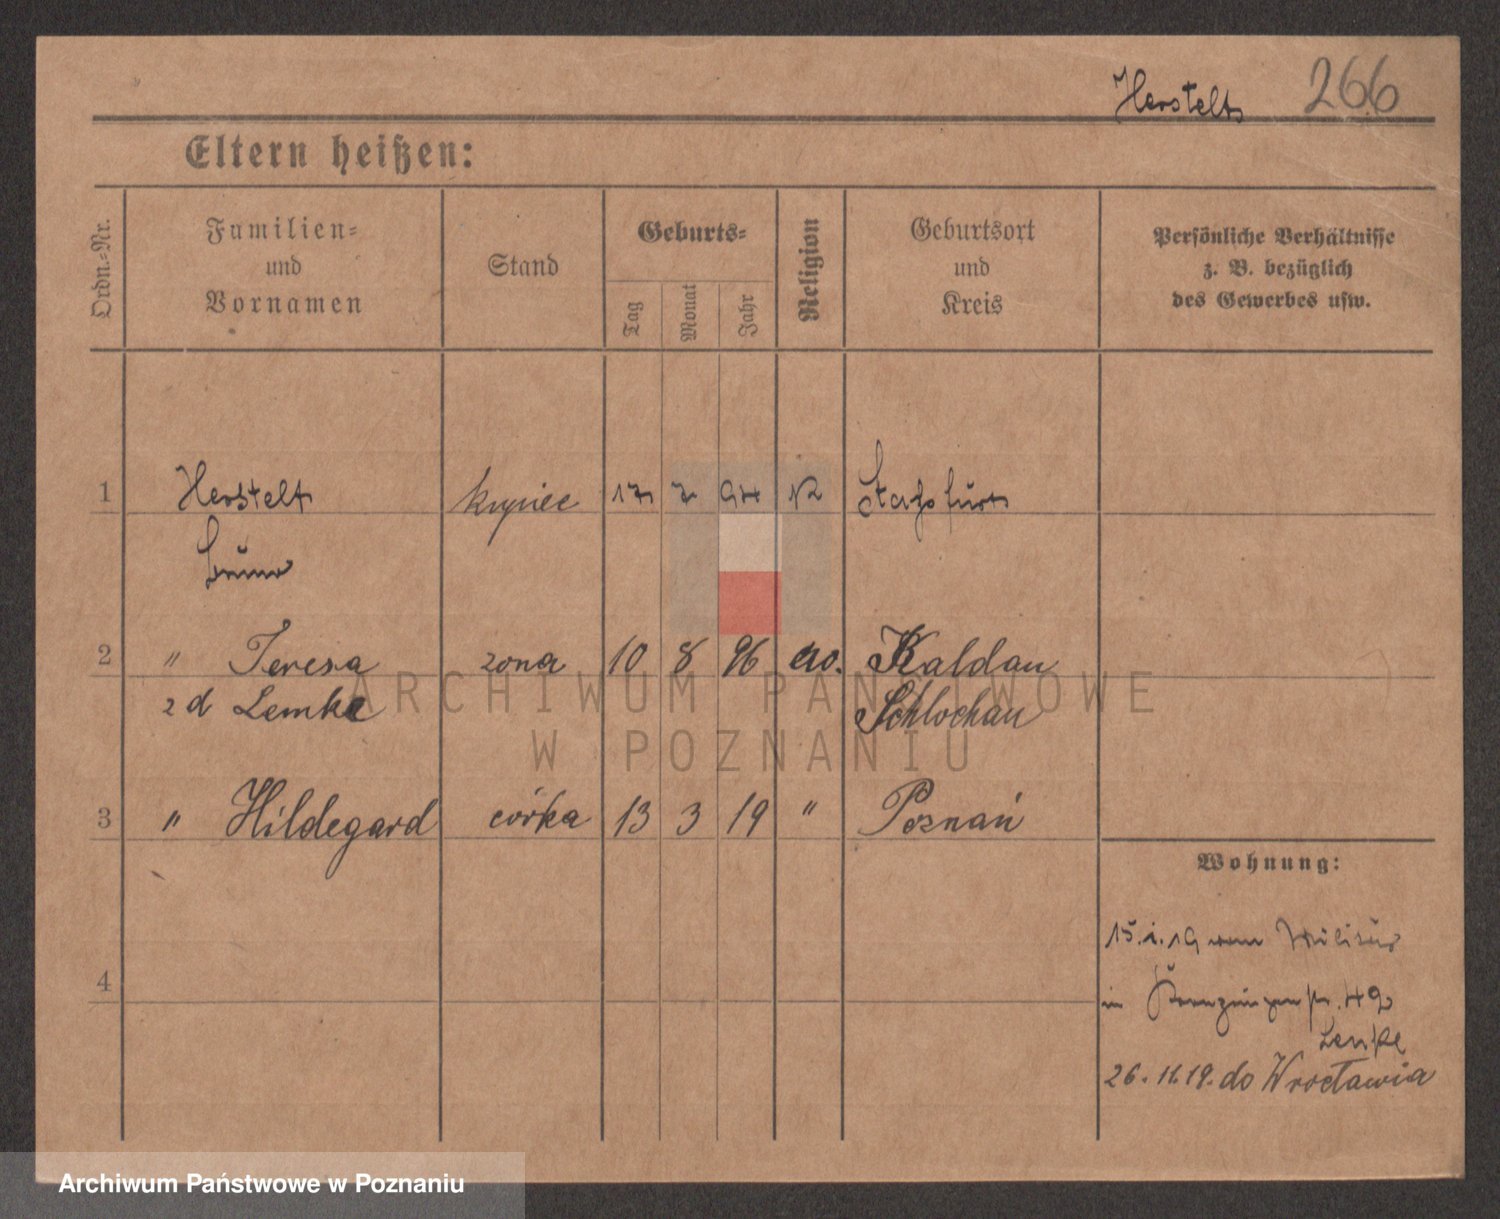 Herstelt 266
Eltern heißen:
Ordn.-Nr.
Familien-
und
Vornamen
Stand
Geburts-
Tag
Monat
Jahr
Religion
Geburtsort
und
Kreis
Persönliche Verhältnisse
z. B. bezüglich
des Gewerbes usw.
1 Herstelt kupiec 17 7 94 Staßfurt
Bruno
2 " Teresa zona 10 8 96 Kaldau
zd Lemke Schlochau
3 " Hildegard córka 13 3 19 " Poznań
Wohnung:
15.1.19 vom Militär
4
in 49
26.11.19. do Wrocławia
ARCHIWUM PAŃSTWOWE
W POZNANIU
Archiwum Państwowe w Poznaniu